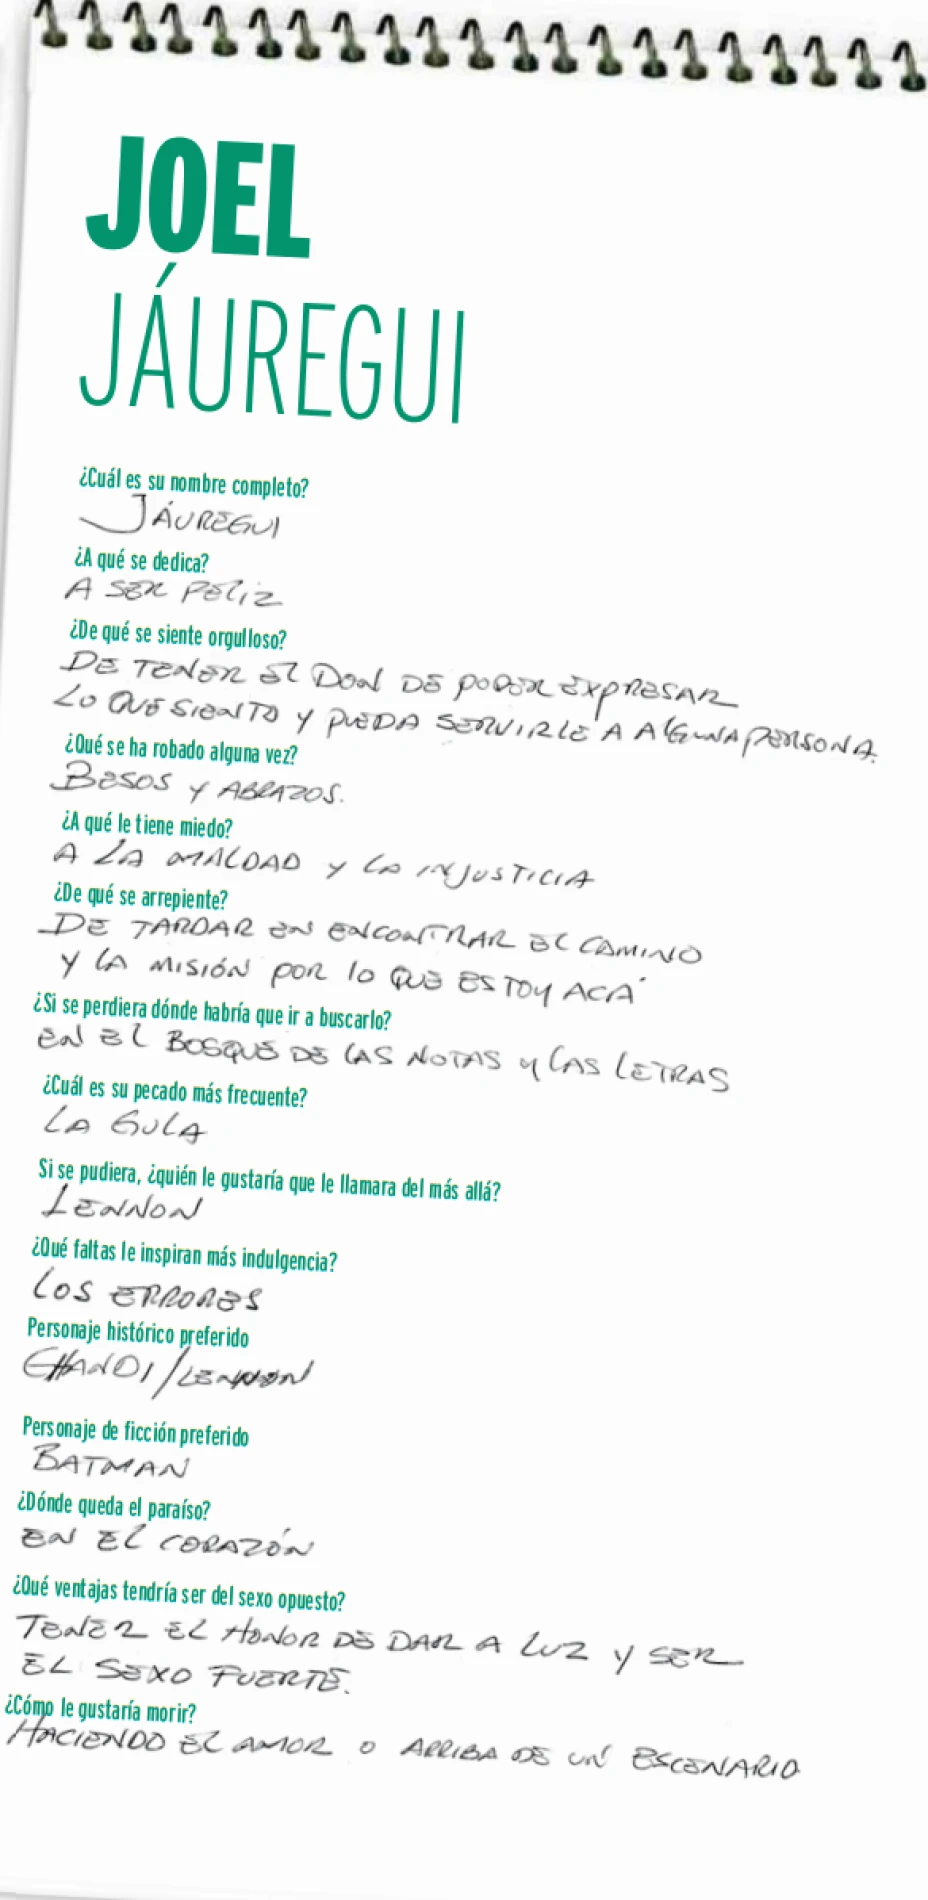 JOEL
JÁUREGUI
¿Cuál es su nombre completo?
JÁUREGUI
¿A qué se dedica?
A SER FELIZ
¿De qué se siente orgulloso?
DE TENER EL DON DE PODER EXPRESAR
LO QUE SIENTO Y PUEDA SERVIRLE A ALGUNA PERSONA.
¿Qué se ha robado alguna vez?
BESOS Y ABRAZOS.
¿A qué le tiene miedo?
A LA MALDAD Y LA INJUSTICIA
¿De qué se arrepiente?
DE TARDAR EN ENCONTRAR EL CAMINO
Y LA MISIÓN POR LO QUE ESTOY ACÁ
¿Si se perdiera dónde habría que ir a buscarlo?
EN EL BOSQUE DE LAS NOTAS Y LAS LETRAS
¿Cuál es su pecado más frecuente?
LA GULA
Si se pudiera, ¿quién le gustaría que le llamara del más allá?
LENNON
¿Qué faltas le inspiran más indulgencia?
LOS ERRORES
Personaje histórico preferido
GHANDI/LENNON
Personaje de ficción preferido
BATMAN
¿Dónde queda el paraíso?
EN EL CORAZÓN
¿Qué ventajas tendría ser del sexo opuesto?
TENER EL HONOR DE DAR A LUZ Y SER
EL SEXO FUERTE.
¿Cómo le gustaría morir?
HACIENDO EL AMOR O ARRIBA DE UN ESCENARIO